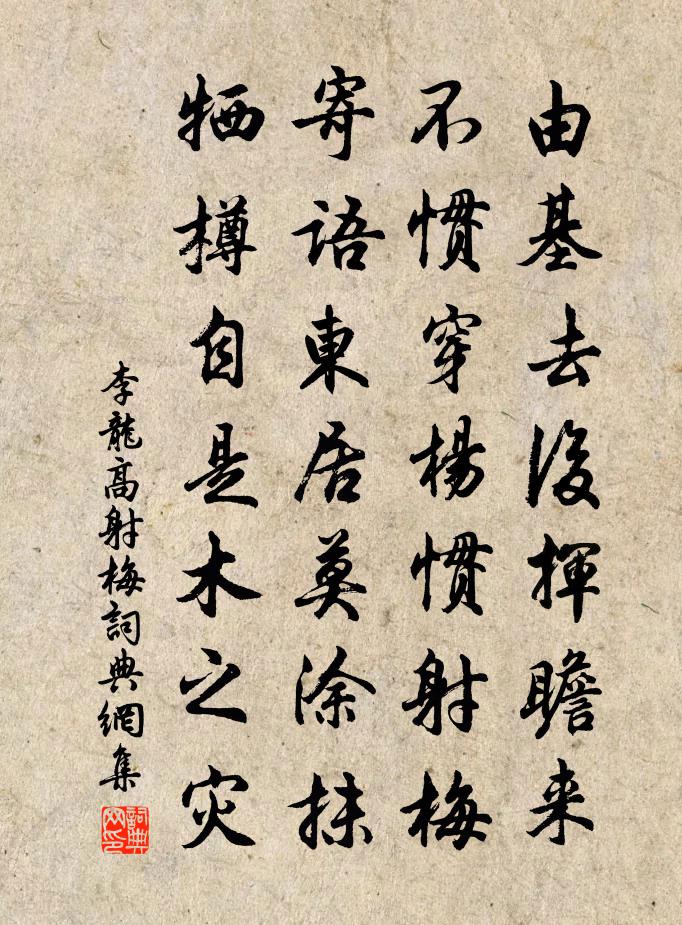 由基去後揮瞻来
不慣穿楊慣射梅
寄語東居莫涂抹
牺樽自是木之灾
李龍高射梅詞典網集
詞典网印